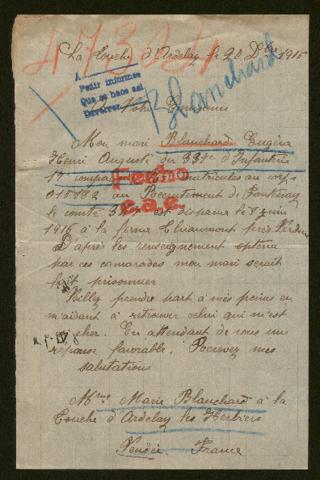 47304
La Touche d'Ardelay le 20 Dbre 1916
A
Pedir informes
Que se hace así
Devolver
Blanchard
A Votre
Mon mari Blanchard Eugène
Henri Auguste du 337e d'Infanterie
17 compagnie matricules au corps
015782 au Recrutement de Fontenay
le comte est disparu le 1 juin
1916 à la ferme Thiaumont près Verdun
D'après les renseignement optenu
par ces camarades mon mari serait
fait prisonnier
Fecho
c.a.c.
Veillez prendre part à mes peines en
m'aidant à retrouver celui qui m'est
cher. En attendant de vous une
réponse favorable. Recevez mes
salutations
Mme Marie Blanchard à la
Touche d'Ardelay les Herbiers
Vendée France